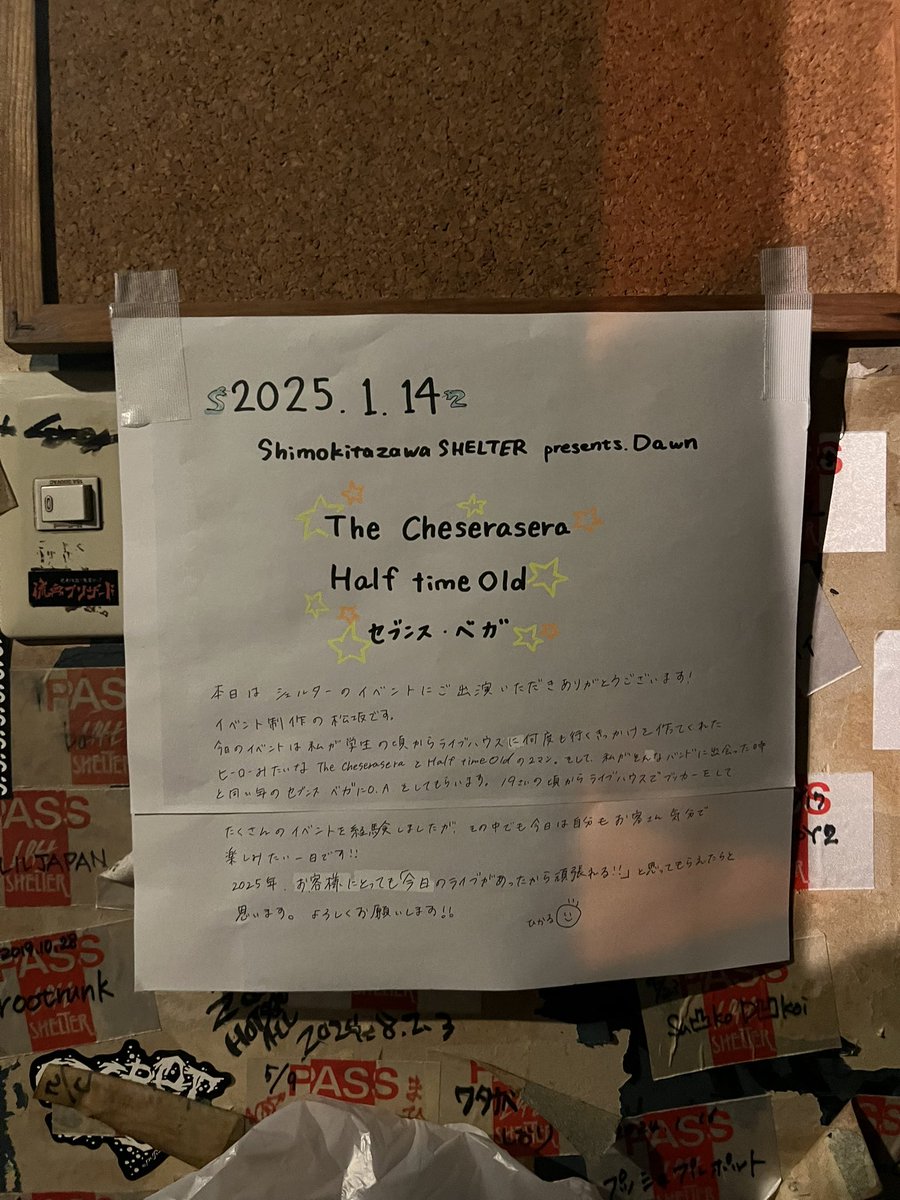 2025.1.14
Shimokitazawa SHELTER presents. Dawn
The Cheserasera
Half time Old
セブンス・ベガ
本日は シェルターのイベントにご出演いただきありがとうございます!
イベント制作の松坂です。
今日のイベントは私が学生の頃からライブハウスに何度も行くきっかけを作てくれた
ヒーローみたいな The Cheserasera と Half time Old の2マン。そして、私がそんなバンドに出会った時
と同い年の セブンス ベガにO.A をしてもらいます。19さいの頃からライブハウスでブッカーをして
たくさんのイベントを経験しましたが、その中でも今日は自分もお客さん気分で
楽しみたい一日です!!
2025年、お客様にとっても「今日のライブがあったから頑張れる!!」と思ってもらえたらと
思います。よろしくお願いします!!
ひかる
PASS
SHELTER
PASS
LILJAPAN
SHELTER
2019.10.28
PASS
rootrunk
SHELTER
2024.8.2.3
PASS
SHELTER
7/9
PASS
ワタガシ
PASS